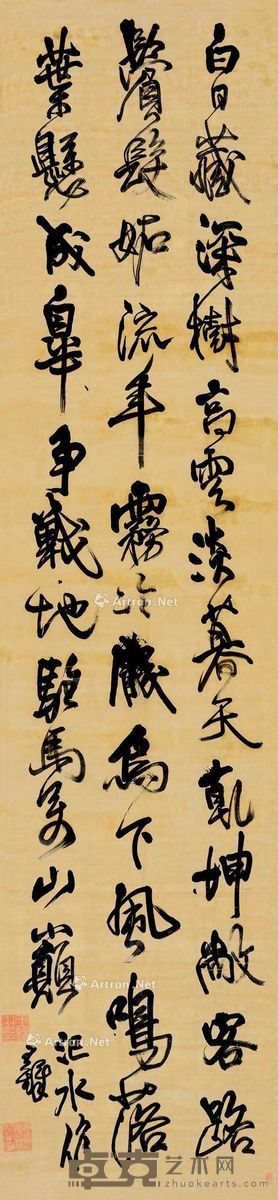 白日藏深樹高雲淡暮天乾坤敞客路
鬢髮妬流年霧冷烏下風鳴落
葉懸成皋爭戰地駐馬萬山巔 汜水作
王鐸
Artron.Net
Artron.Net
Artron.Net
卓克艺术网
zhuokearts.com